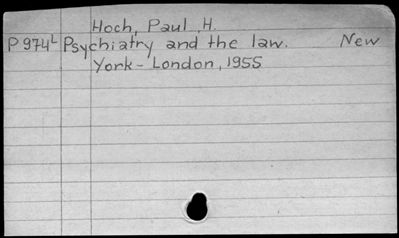 Hoch, Paul, H.
P974L Psychiatry and the law. New
York - London, 1955